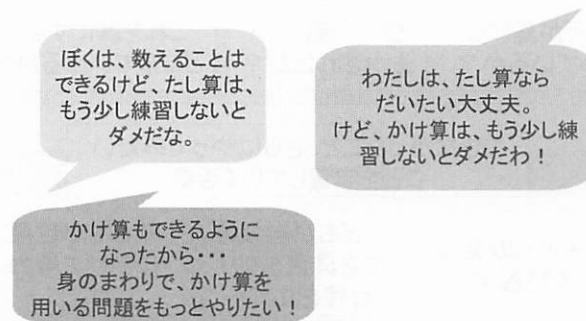 ぼくは、数えることは
できるけど、たし算は、
もう少し練習しないと
ダメだな。
わたしは、たし算なら
だいたい大丈夫。
けど、かけ算は、もう少し練
習しないとダメだわ！
かけ算もできるように
なったから・・・
身のまわりで、かけ算を
用いる問題をもっとやりたい！